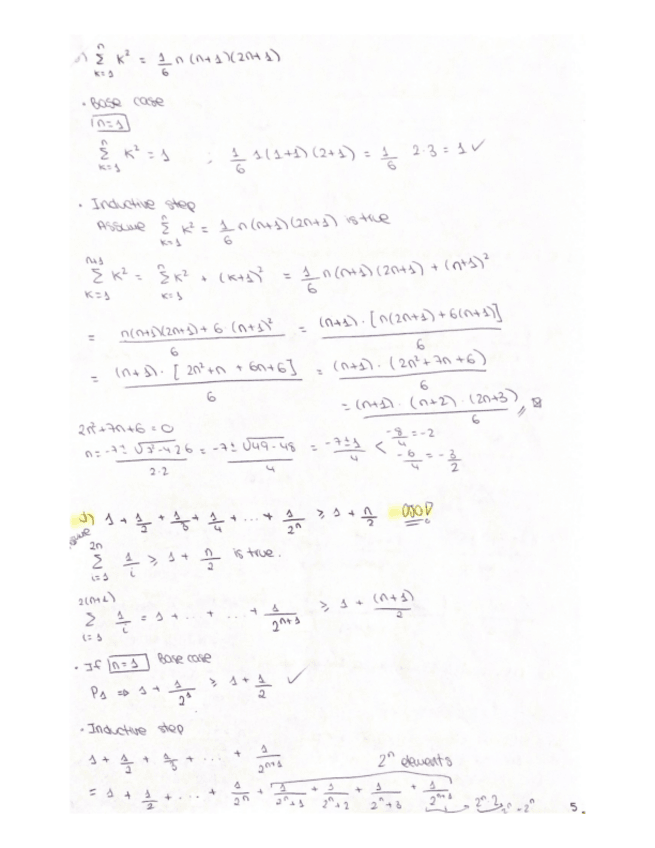 c) n Σ k=1 k² = 1/6 n (n+1)(2n+1)
· Base case
n=1
n Σ k=1 k² = 1 ; 1/6 1(1+1)(2+1) = 1/6 2·3 = 1 ✓
· Inductive step
Assume n Σ k=1 k² = 1/6 n(n+1)(2n+1) is true
n+1 Σ k=1 k² = n Σ k=1 k² + (k+1)² = 1/6 n(n+1)(2n+1) + (n+1)²
= n(n+1)(2n+1) + 6·(n+1)² / 6 = (n+1)·[n(2n+1)+6(n+1)] / 6
= (n+1)·[2n²+n + 6n+6] / 6 = (n+1)·(2n²+7n+6) / 6
= (n+1)·(n+2)·(2n+3) / 6
2n²+7n+6=0
n = -7± √7²-4·2·6 / 2·2 = -7± √49-48 / 4 = -7±1 / 4 < -8/4 = -2
-6/4 = -3/2
d) 1 + 1/2 + 1/3 + 1/4 + ... + 1/2ⁿ ≥ 1 + n/2
2n Σ i=1 1/i ≥ 1 + n/2 is true.
2(n+1) Σ i=1 1/i = 1 + .. + ... + 1/2ⁿ⁺¹ ≥ 1 + (n+1)/2
· If n=1 Base case
P1 ⇒ 1 + 1/2¹ ≥ 1 + 1/2 ✓
· Inductive step
1 + 1/2 + 1/3 + ... + 1/2ⁿ⁺¹
2ⁿ elements
= 1 + 1/2 + ... + 1/2ⁿ + 1/2ⁿ+1 + 1/2ⁿ+2 + 1/2ⁿ+3 + 1/2ⁿ⁺¹
5.